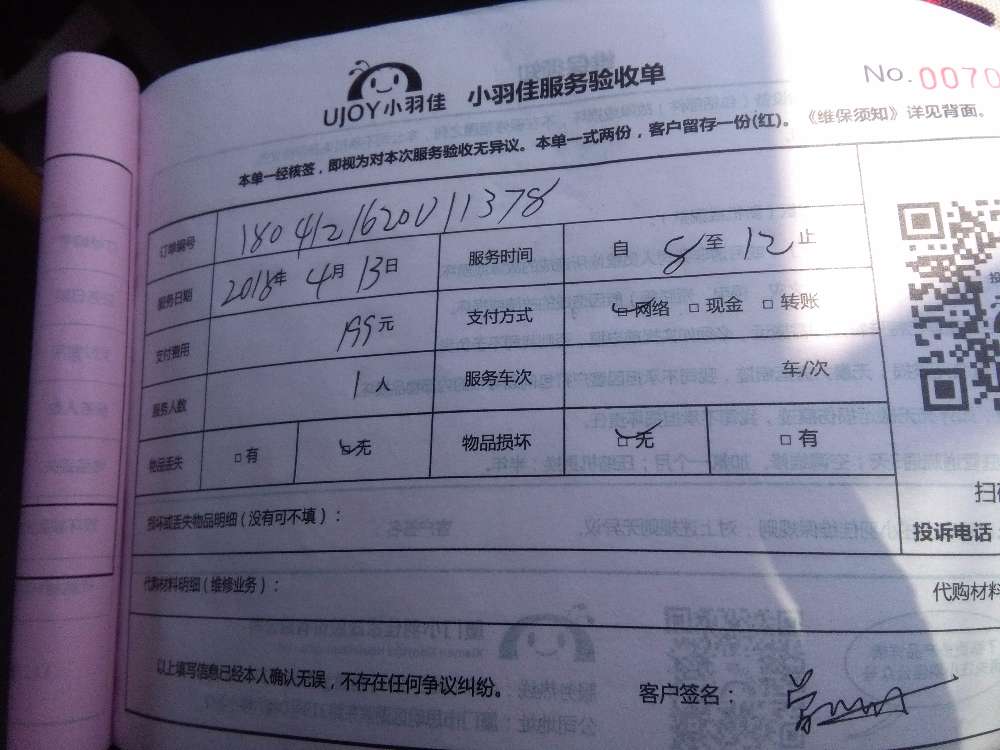 UJOY小羽佳 小羽佳服务验收单 No.0070
本单一经核签，即视为对本次服务验收无异议。本单一式两份，客户留存一份(红)。《维保须知》详见背面。
订单编号 1804121620U11378
服务日期 2018年 4月 13日 服务时间 自 8 至 12 止
支付费用 199元 支付方式 网络 现金 转账
服务人数 1人 服务车次 车/次
物品丢失 有 无 物品损坏 无 有
损坏或丢失物品明细(没有可不填)：
投诉电话
代购材料明细(维修业务)： 代购材料
以上填写信息已经本人确认无误，不存在任何争议纠纷。 客户签名：